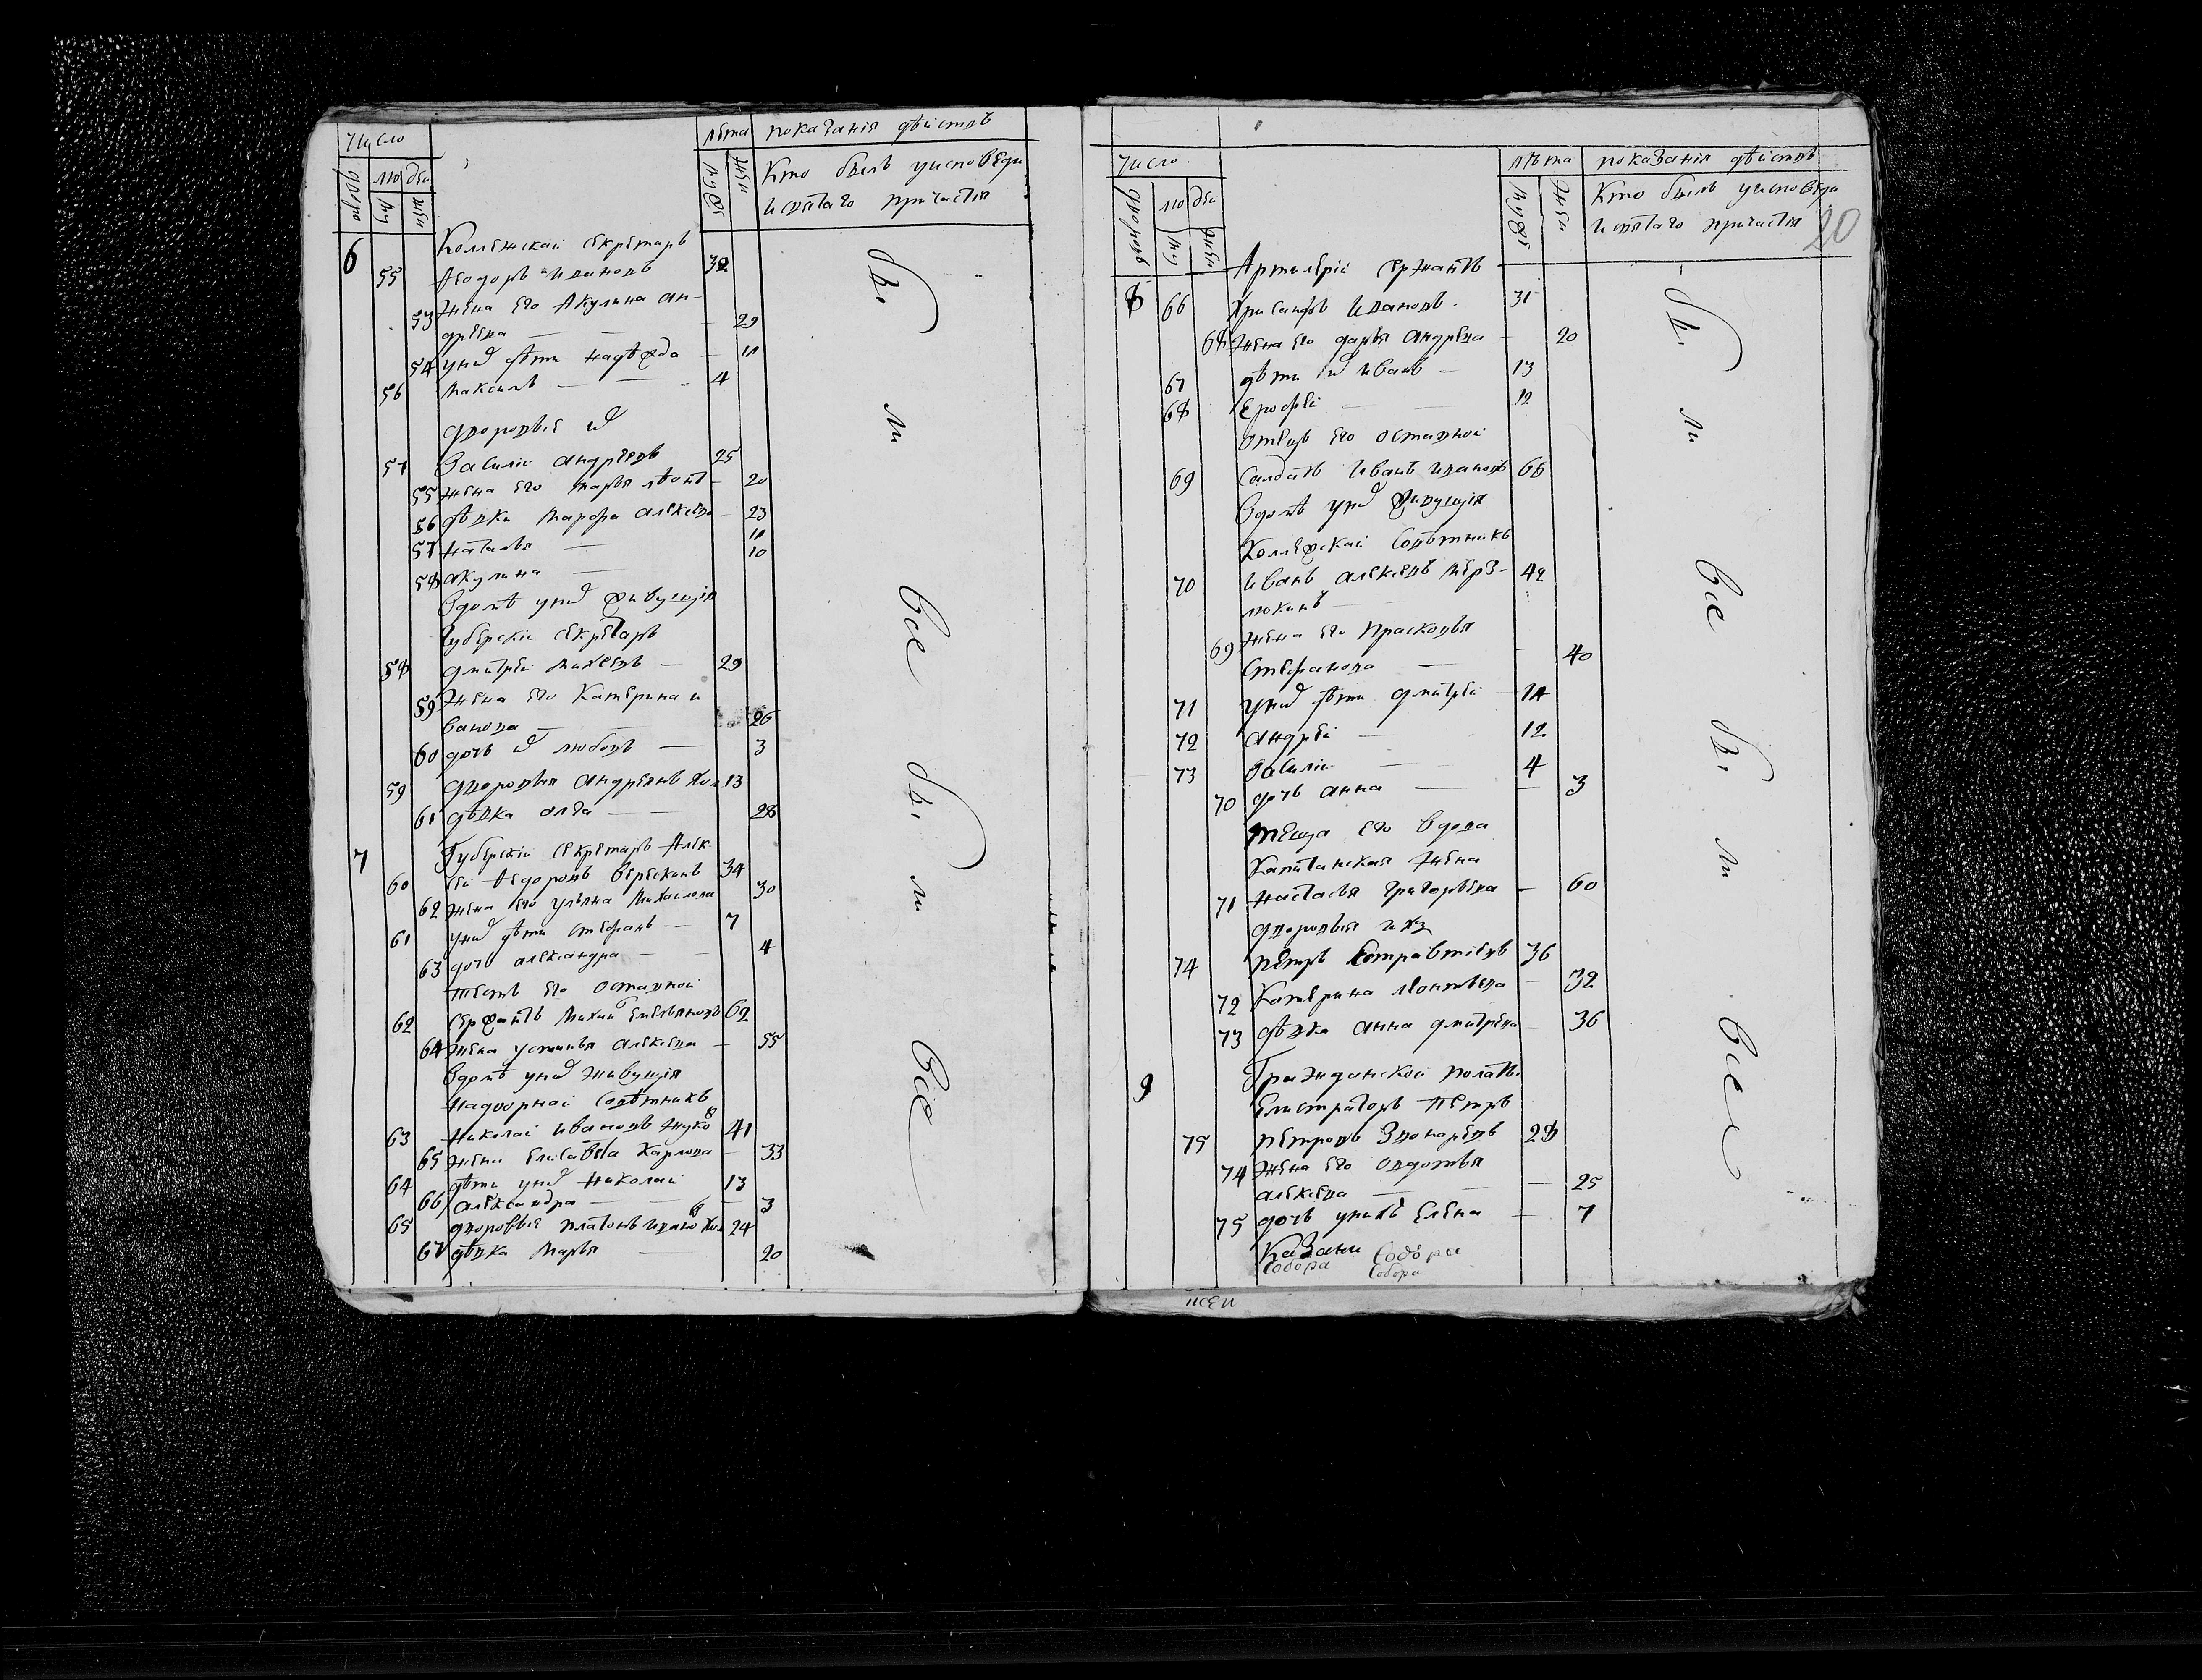 Число
лѣта показания дѣйствъ
дворовъ лю дѣи
му женъ
мужеъ женъ
Кто былъ уисповѣди
исвятаго причастия
6 Коллежскаи секретарь
55 Ѳеодоръ Ивановъ 32
53 Жена его Акулина Ан-
дрѣева — 29
54 унихъ дѣти надежда — 11
56 Максимъ — 4
дворовые ихъ
57 Василии андрѣевъ 25
55 жена его марья леонт — 20
56 дѣвки Марфа алексѣева — 23
57 наталья — 11
58 акулина — 10
вдомѣ унихъ живущия
Губерскии секретарь
58 дмитреи михеевъ — 29
59 Жена его Катерина и
ванова — 26
60 дочь ихъ любовь — 3
59 дворовыя андреянъ хол 13
61 дѣвка олга — 28
7 Губерскии секретарь Алек
60 сѣи Ѳедоровъ Верескинъ 34
62 жена его ульяна Михаилова 30
61 унихъ дѣти стефанъ — 7
63 дочь александра — 4
тесть его оставной
62 сержантъ Михаи Емельяновъ 62
64 жена устинья алексѣева — 55
вдомѣ унихъ живущия
надворнаи совѣтникъ
63 Николаи Ивановъ Жуко в 41
65 жена Елисавета Карлова — 33
64 дѣти унихъ Николаи 13
66 александра — 3
65 дворовые платонъ ивано в хол 24
67 дѣвка Марья — 20
бы ли все бы ли все
20
Число
лѣта показания дѣйствъ
дворовъ лю дѣи
му женъ
мужеъ женъ
Кто былъ уисповѣди
исвятаго причастия
Артилерии сержантъ
8 66 Хрисанфъ Ивановъ 31
68 жена его дарья андрѣева — 20
67 дѣти ихъ иванъ — 13
68 Ерофеи — 12
отецъ его оставной
69 салдатъ Иванъ ивановъ 68
вдомѣ унихъ живущия
Коллежскаи совѣтникъ
70 Иванъ алексѣевъ Мерз- 42
люкинъ —
69 жена его Прасковья
Стефанова — 40
71 унихъ дѣти дмитреи — 14
72 андреи — 12
73 василии — 4
70 дочь анна — 3
теща его вдова
Капитанская жена
71 настасья григорьева — 60
дворовыя ихъ
74 петръ Евтравтиевъ 36
72 Катерина леонтьева — 32
73 дѣвка анна дмитрева — 36
9 Гражданской полаты
елистраторъ петръ
75 петровъ Звонаревъ 28
74 жена его овдотья
алексѣева — 25
75 дочь унихъ Елена — 7
Казани Собора
собора Собора
бы ли все бы ли все